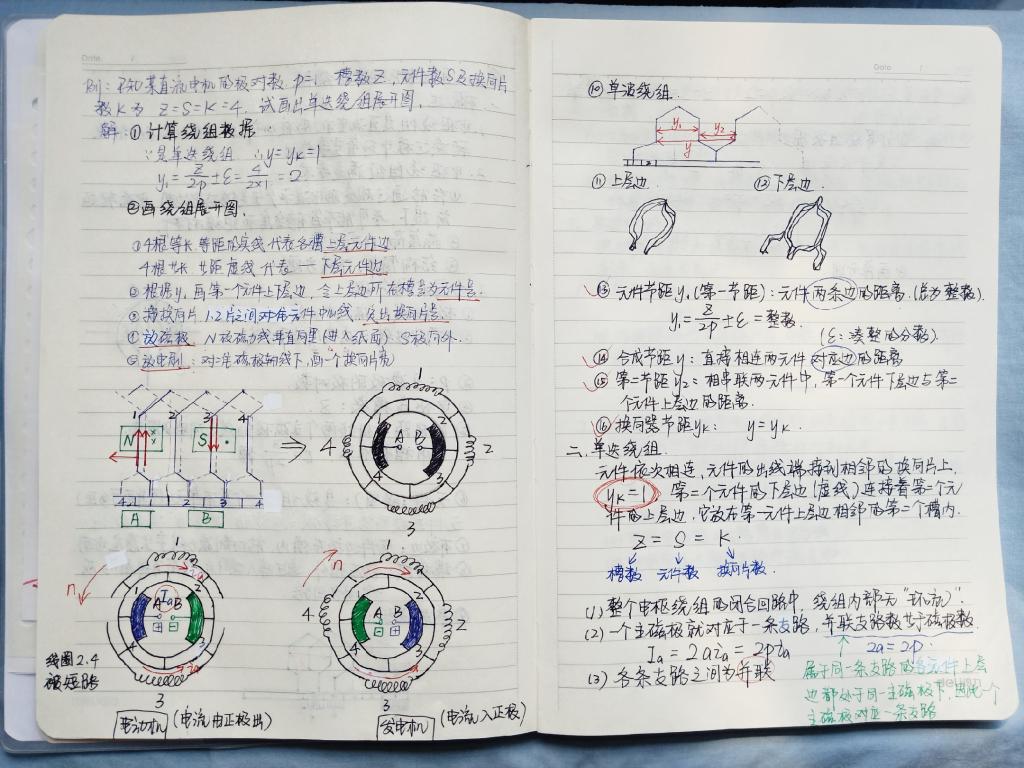 Date
例: 已知某直流电机的极对数 p=1, 槽数Z, 元件数S及换向片
数K为 Z=S=K=4. 试画出单迭绕组展开图.
解: ① 计算绕组数据
∵是单迭绕组 ∴y=yK=1
y₁=Z/2p±ε=4/2×1=2
②画绕组展开图.
①4根等长等距的实线代表各槽上层元件边
4根 长 距虚线代表 下层元件边
②根据y₁画第一个元件上下层边, 令上层边所在槽号为元件号.
③ 换向片 1.2片之间对 元件中心线,
④放磁极 N极磁力线垂直向里(进入纸面) S极向外.
⑤放电刷: 对准磁极轴线下,画一个换向片宽)
1 2 3 4
N × S •
4 1 2 3 4
A B
1
4 A B 2
3
n 1
Ia
A B
2
3
线圈2.4
被短路
电动机 (电流由正极出)
n 1
4 A B 2
3
发电机 (电流入正极)
Date
⑩ 单波绕组.
y₁ y₂
y
⑪上层边. ⑫下层边.
⑬ 元件节距y₁(第一节距): 元件两条边的距离. (总为整数).
y₁=Z/2p±ε=整数.
(ε: 凑整的分数)
⑭ 合成节距y: 直接相连两元件对应边的距离
⑮ 第二节距y₂: 相串联两元件中, 第一个元件下层边与第二
个元件上层边的距离.
⑯ 换向器节距yK: y=yK.
二. 单迭绕组.
元件依次相连, 元件的出线端接到相邻的换向片上,
yK=1 第一个元件的下层边(虚线)连接着第二个元
件的上层边, 它放在第一元件上层边相邻的第二个槽内.
Z = S = K.
槽数 元件数 换向片数.
(1) 整个电枢绕组的闭合回路中, 绕组内部无“环流”.
(2) 一个主磁极就对应于一条支路, 并联支路数等于磁极数
Ia=2aia=2pia 2a=2p.
(3) 各条支路之间为并联
属于同一条支路的各元件上层
边都处于同一主磁极下, 因此一个
主磁极对应一条支路